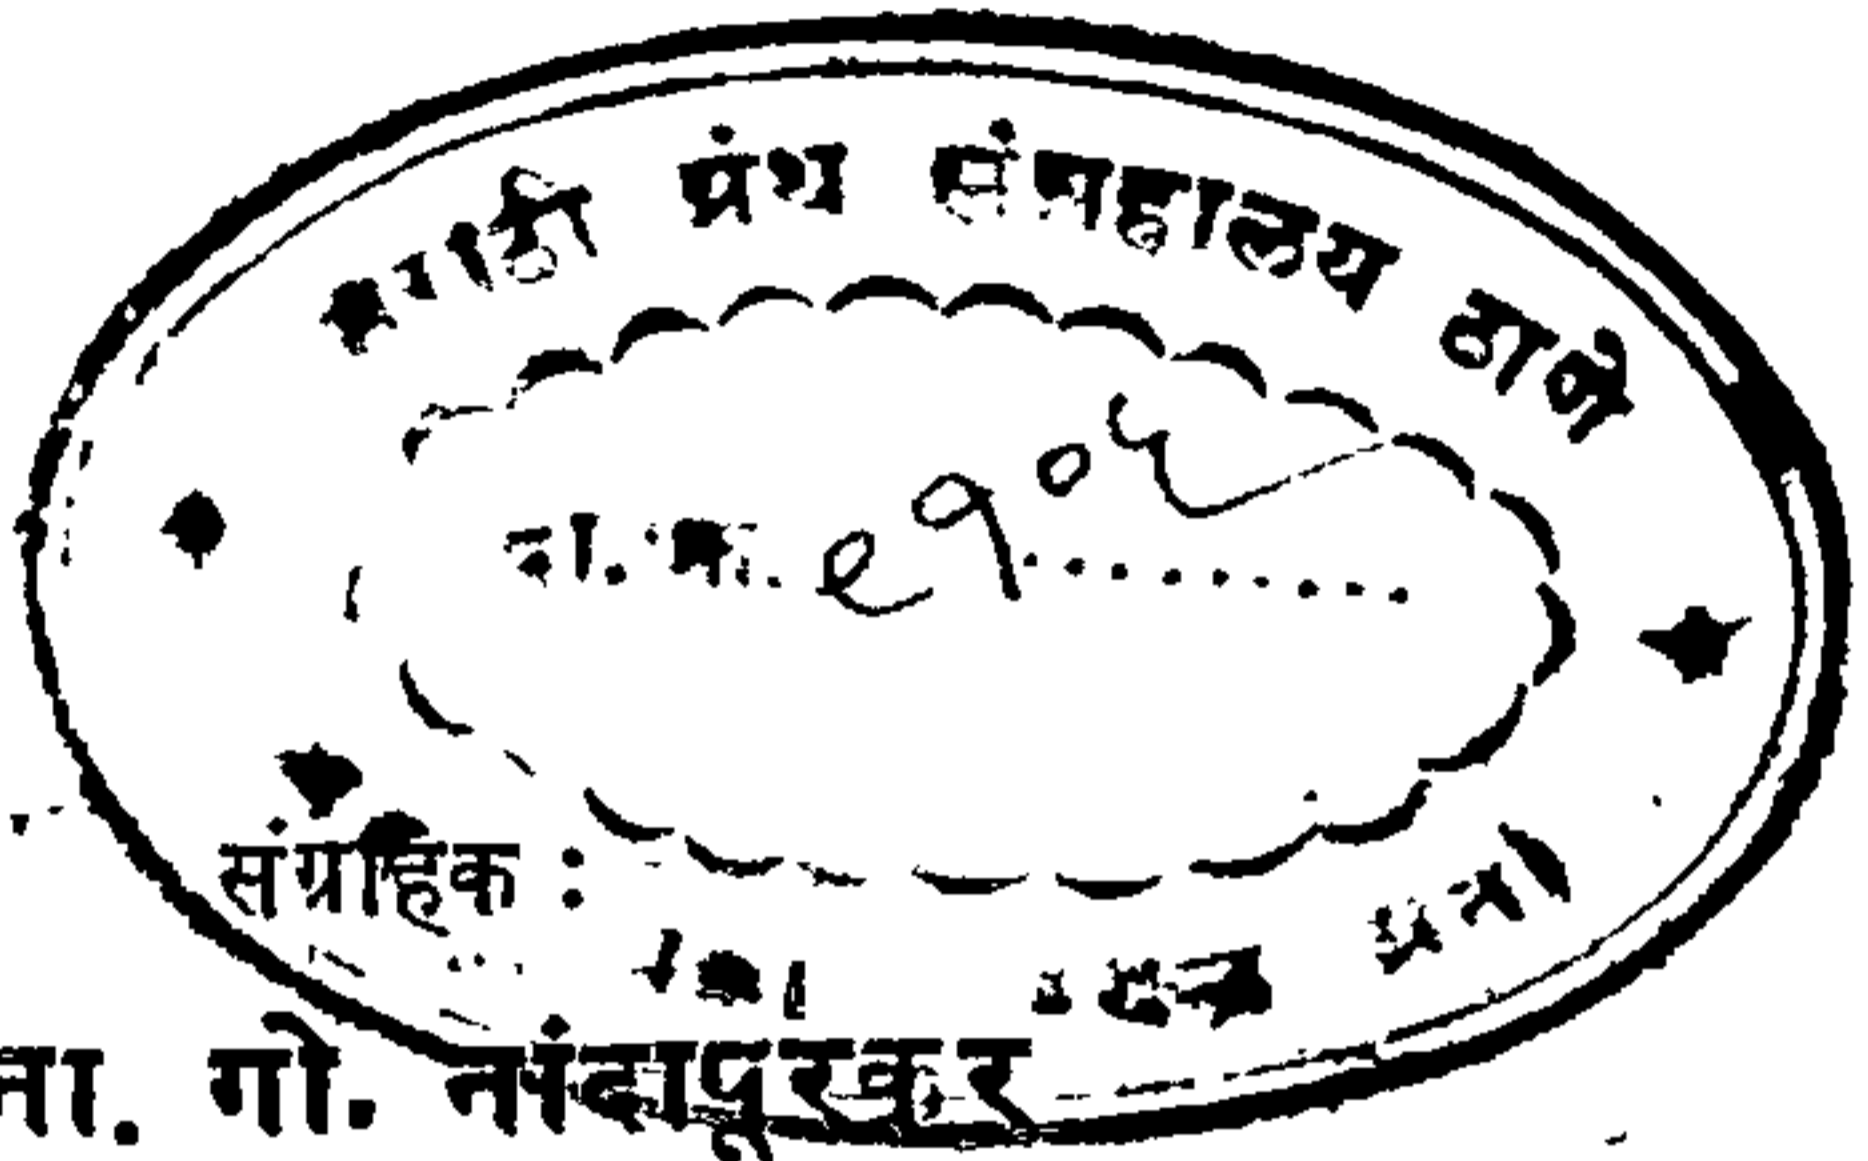 मराठी ग्रंथ संग्रहालय ठाणे
दा. क्र. ९१०५
संग्राहक :
ना. गो. नांदापूरकर